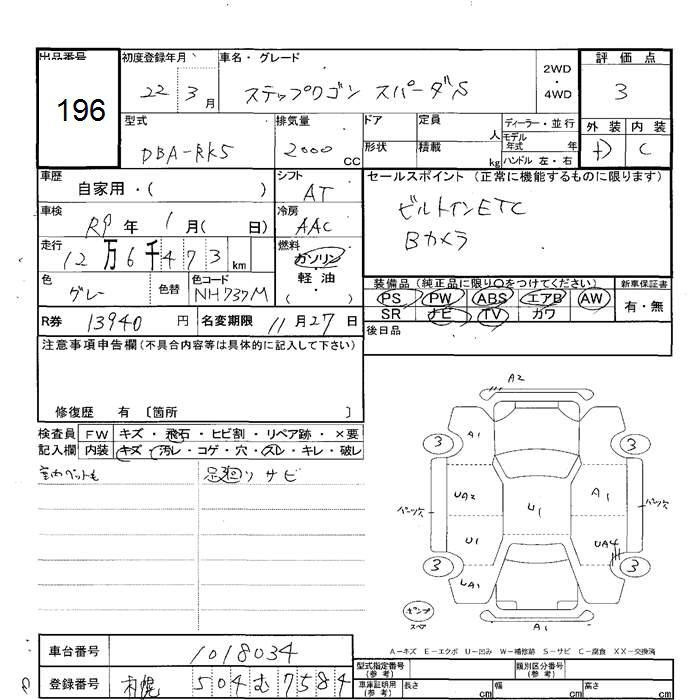 出品番号
196
初度登録年月
22 3 月
車名・グレード
ステップワゴン スパーダS
2WD
・
4WD
評価点
3
外装 内装
D C
型式
DBA-RK5
排気量
2000 CC
ドア
形状
定員 人
積載 kg
ディーラー・並行
モデル年式 年
ハンドル 左・右
車歴
自家用・( )
シフト
AT
セールスポイント (正常に機能するものに限ります)
ビルトインETC
Bカメラ
車検
R9 年 1 月( 日)
冷房
AAC
走行
12万6千473 km
燃料
ガソリン
・
軽・油
( )
色
グレー
色替
色コード
NH737M
装備品 (純正品に限り○をつけてください)
PS PW ABS エアB AW
SR ナビ TV カワ
新車保証書
有・無
R券 13940 円
名変期限 11 月 27 日
後日品
注意事項申告欄(不具合内容等は具体的に記入して下さい)
修復歴 有 〔箇所 〕
検査員
記入欄
FW キズ・飛石・ヒビ割・リペア跡・×要
内装 キズ・汚レ・コゲ・穴・スレ・キレ・破レ
足廻りサビ
A2
A1
3
3
UA2
U1
A1
U1
UA4
3
3
A1
A-キズ E-エクボ U-凹み W-補修跡 S-サビ C-腐食 XX-交換済
車台番号 1018034
登録番号 札幌 504 む 7584
型式指定番号
(参考)
類別区分番号
(参考)
車庫証明用
(参考)
長さ cm
幅 cm
高さ cm